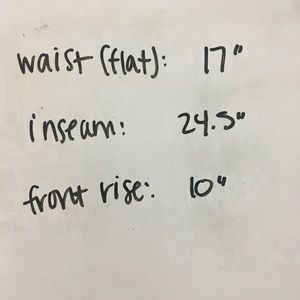 waist (flat): 17"
inseam: 24.5"
front rise: 10"